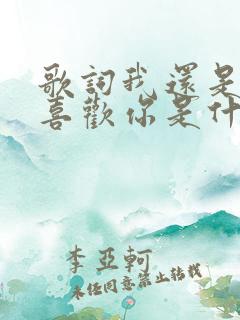 歌詞我還是
喜歡你是什
李亞軻
未经同意禁止转载